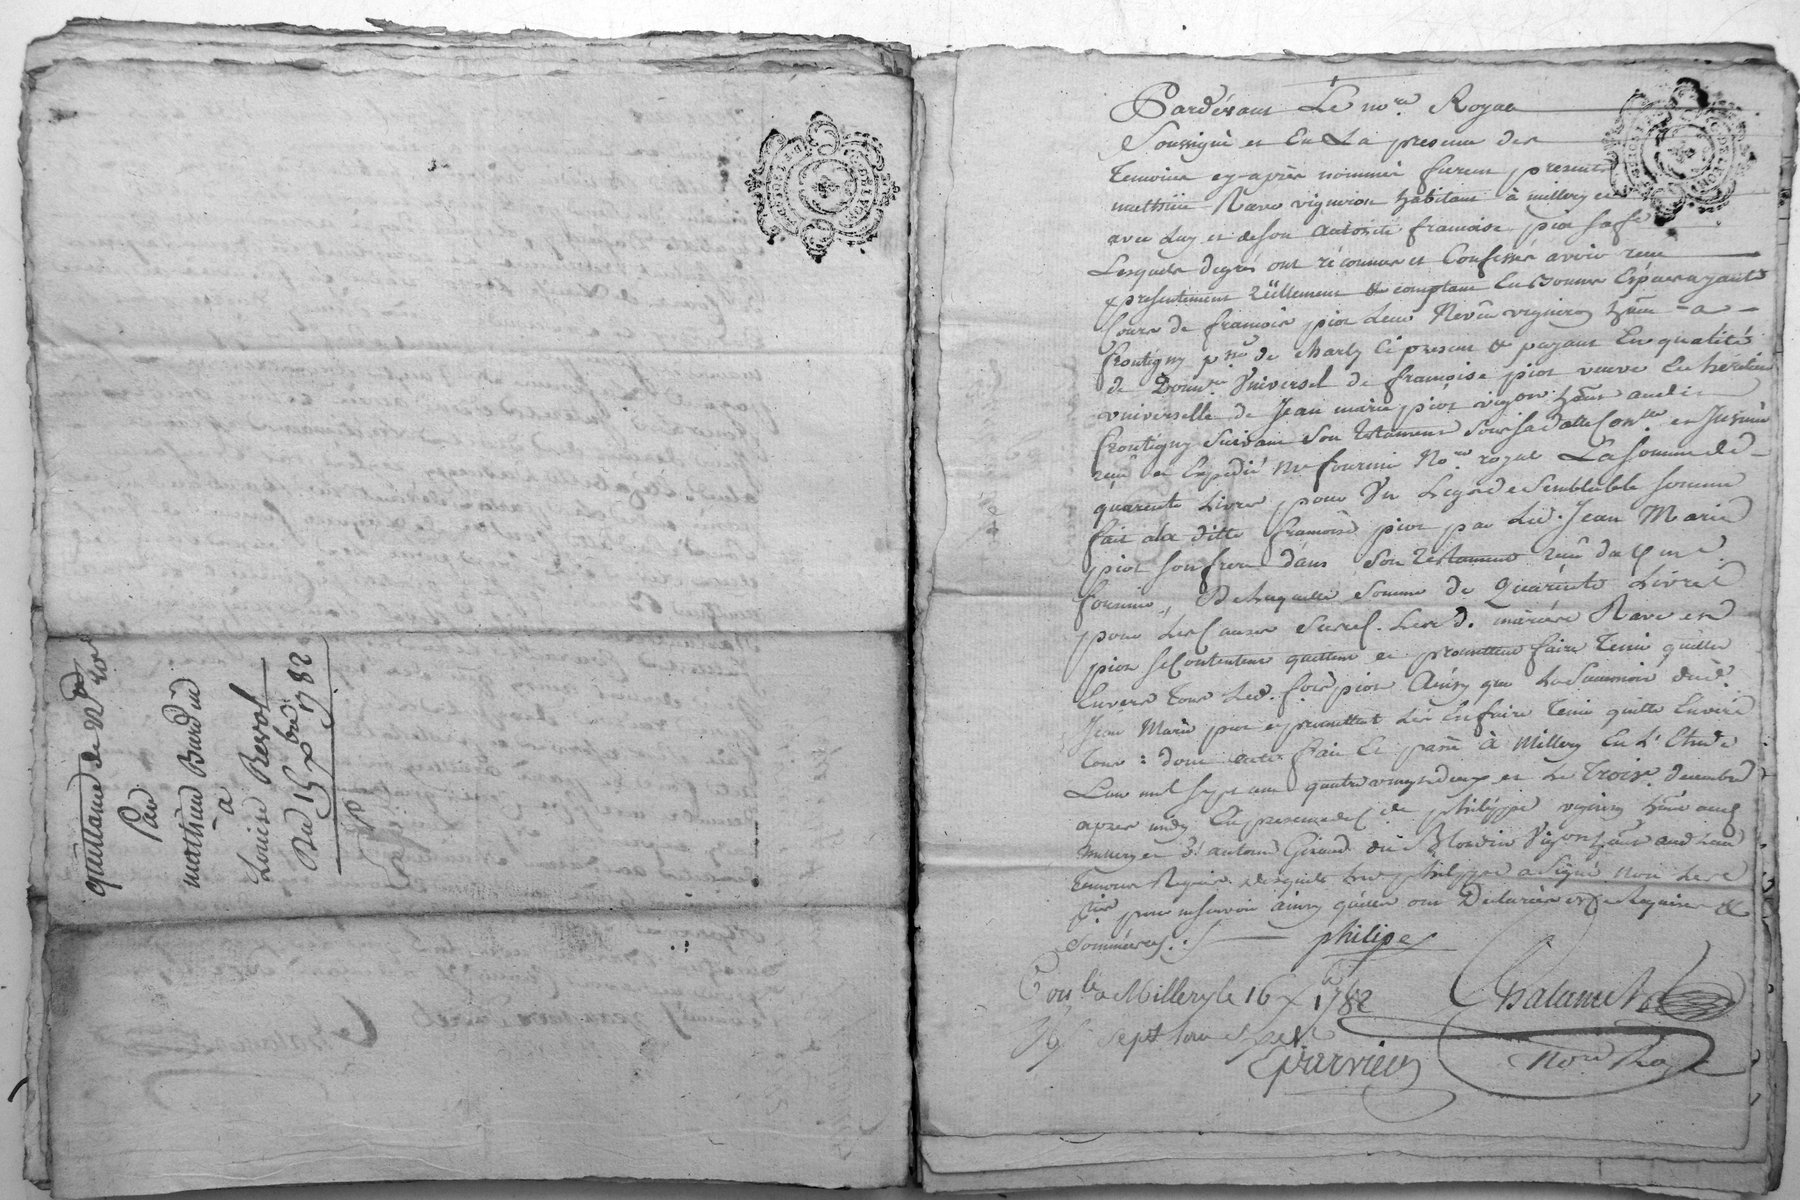 quittance de
Par
mathieu Burdin
à
Louise Revol
Du 15 xbre 1782
Pardevant Le nre. Royal
Soussigné et En La presence des
Temoins cy-après nommés furent presents
mathieu Rave vigneron habitant à millery et
avec Luy et de son autorité francoise piot sa fe
Lesquels degrés ont réconnus et Confessé avoir reçu
presentement réëllement & comptant En Bonnes Espèces ayants
Cours de francois piot Leur Neveu vigneron à
frontigny de charly Ci present & payant En qualité
de Universel de francoise piot veuve Et heritiere
universelle de Jean marie piot vigon audit
frontigny Suivant Son testament Sous Sa datte et
reçu et Expedié Me fournier No.re royal La Somme de
quarente Livres pour Un Legs de Semblable Somme
fait à la ditte francoise piot par Led. Jean Marie
piot Son frere dans Son testament reçu dud. me.
fournier, De Laquelle Somme de Quarente Livres
pour Les Causes Susd. Lesd. mariés Rave et
piot Se Contentent quittent et promettent faire Tenir quitte
Envers Tous Led. fois piot Ainsy que La Succession dud.
Jean Marie piot et promettent Les En faire Tenir quitte Envers
tous : dont acte fait Et passé à Millery En L'Etude
L'an mil Sept cent quatre vingt deux et Le Trois decembre
apres midy En presence de philippe vigneron aud.
millery et Sr antoine Giraud dit Blondin Vigon aud. Lieu
temoins Requis Lesquels Led philippe a Signé non Les
pour ne Scavoir ainsy qu'elles ont Déclarées de Requises &
Sommées.
philipe
Conlé a Millery le 16 xbre 1782
sept sous
Epurvieux
Chalamel
No.re Ro